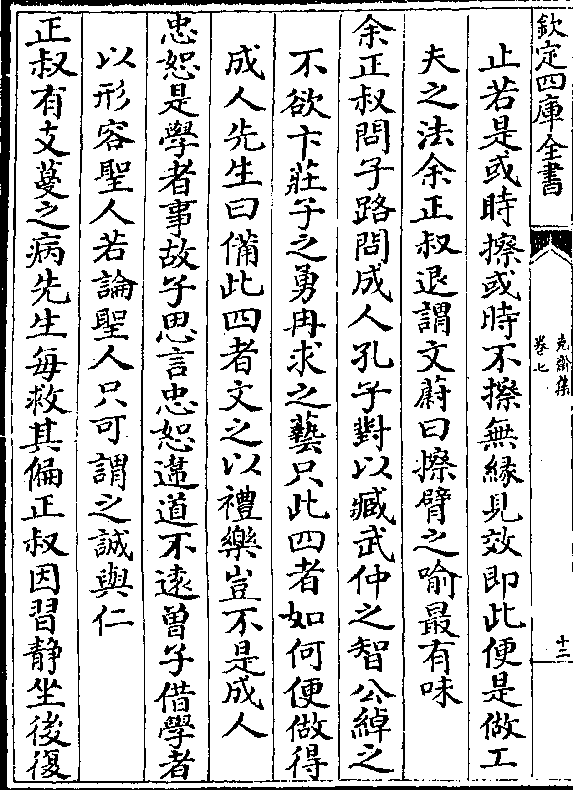 欽定四庫全書
克齋集
卷七
十二
止若是或時擦或時不擦無緣見效即此便是做工
夫之法余正叔退謂文蔚曰擦臂之喻最有味
余正叔問子路問成人孔子對以臧武仲之智公綽之
不欲卞莊子之勇冉求之藝只此四者如何便做得
成人先生曰備此四者文之以禮樂豈不是成人
忠恕是學者事故子思言忠恕違道不逺曾子借學者
以形容聖人若論聖人只可謂之誠與仁
正叔有支蔓之病先生每救其偏正叔因習靜坐後復